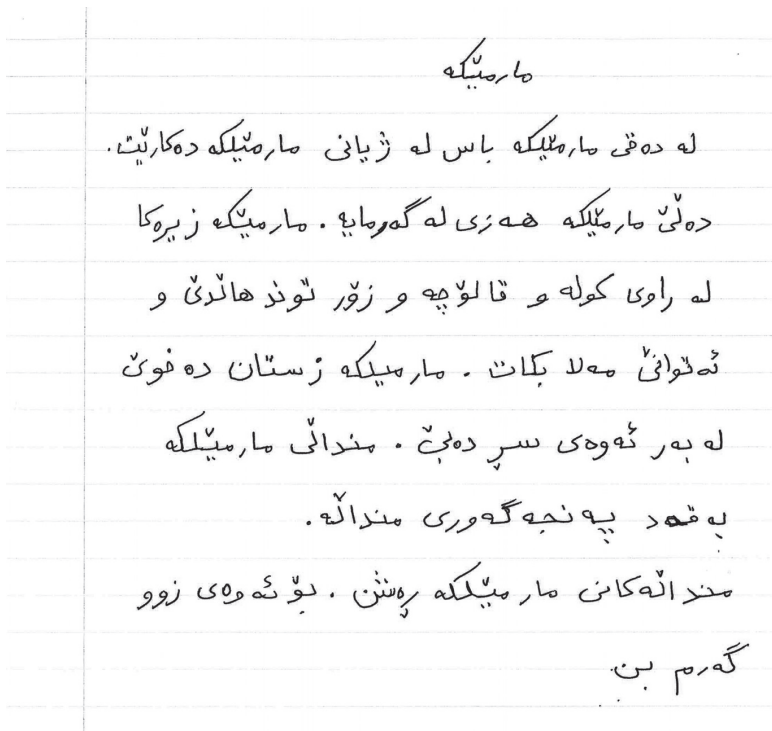 مارمێلکە
لە دەقی مارمێلکە باس لە ژیانی مارمێلکە دەکارێت.
دەڵێ مارمێلکە هەزی لە گەرمایە. مارمێلکە زیرەکا
لە راوی کولە و قالۆچە و زۆر توند هاڵدێ و
ئەتوانێ مەلا بکات. مارمیلکە زستان دەخوێ
لە بەر ئەوەی سڕ دەبێ. منداڵی مارمێلکە
بە قەد پەنجە گەوری منداڵە.
منداڵەکانی مارمێلکە ڕەشن. بۆ ئەوەی زوو
گەرم بن